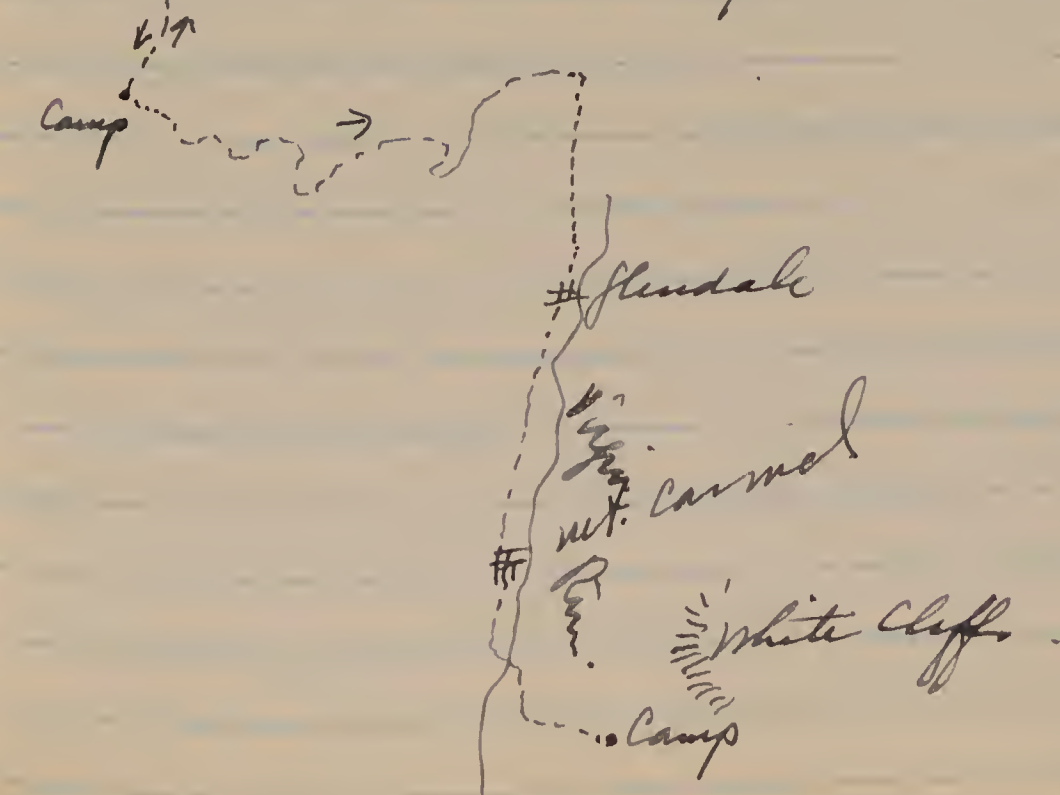 Camp
Glendale
Virgin
Mt. Carmel
White Cliffs
Camp